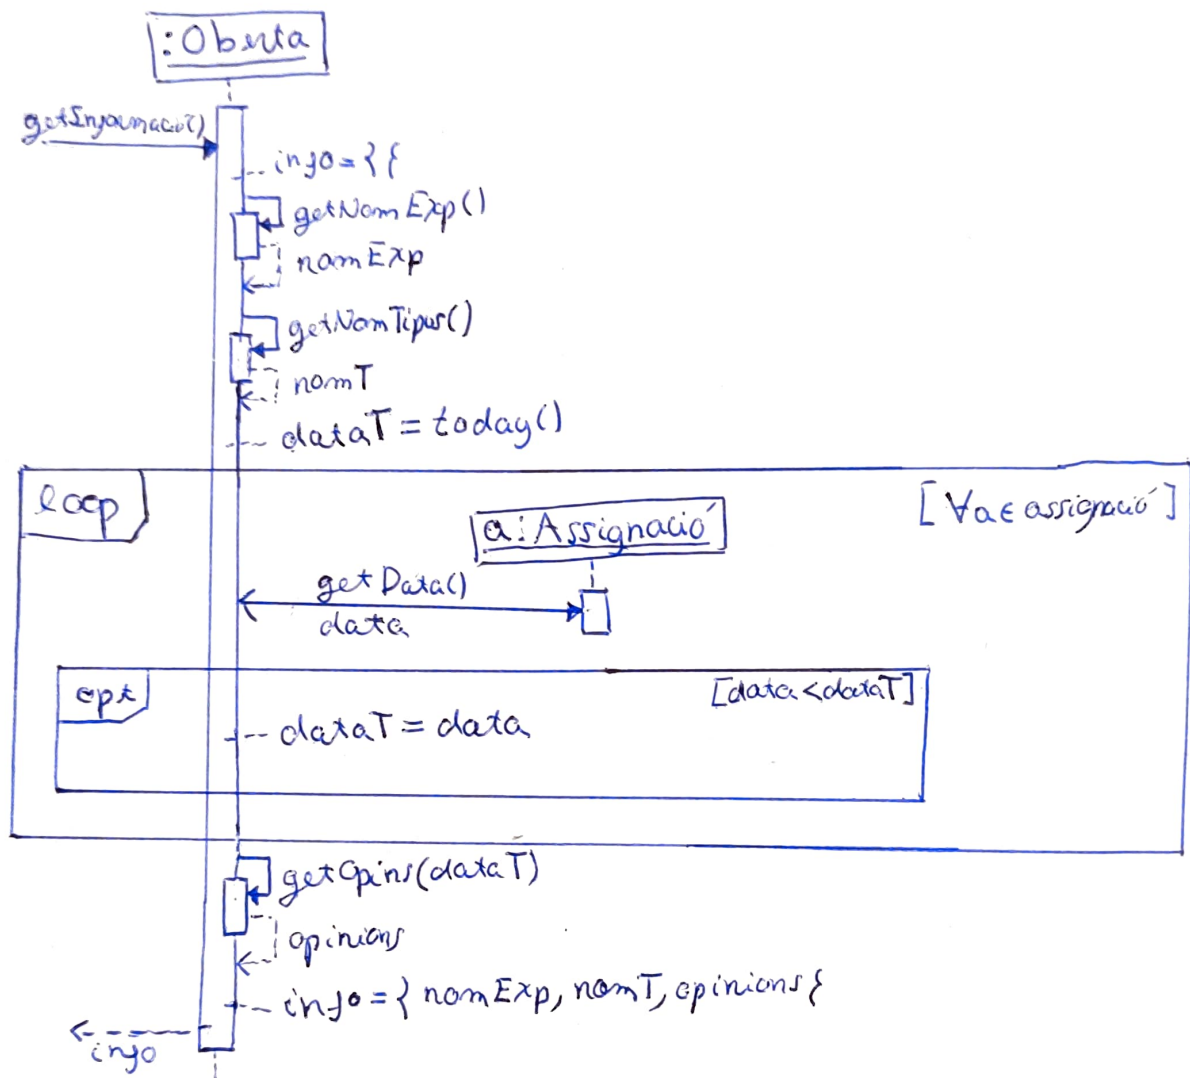 :Oberta
getInformació()
info={{
getNomExp()
nomExp
getNomTipus()
nomT
dataT = today()
loop
[∀a∈assignació]
a:Assignació
getData()
data
opt
[data<dataT]
dataT = data
getOpins(dataT)
opinions
info={nomExp, nomT, opinions{
info